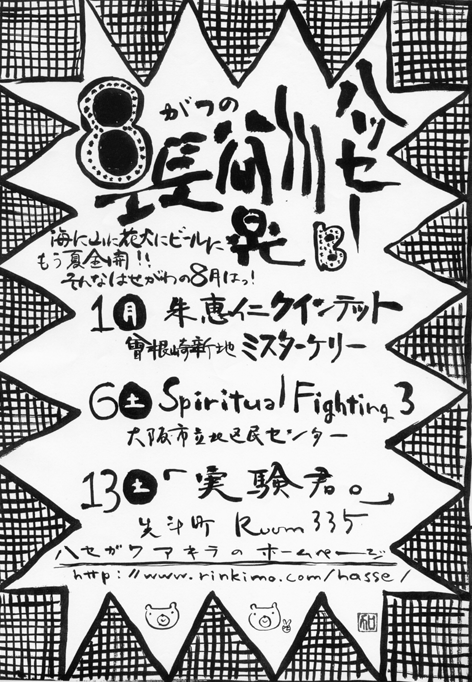 8がつの
長谷川晃
ハッセーB
海に山に花火にビールに
もう夏全開!!
そんなはせがわの8月はっ!
1月 朱恵仁クインテット
曽根崎新地 ミスターケリー
6土 Spiritual Fighting 3
大阪市立北区民センター
13土「実験君。」
先斗町 Room 335
ハセガワアキラのホームページ
http://www.rinkimo.com/hasse/